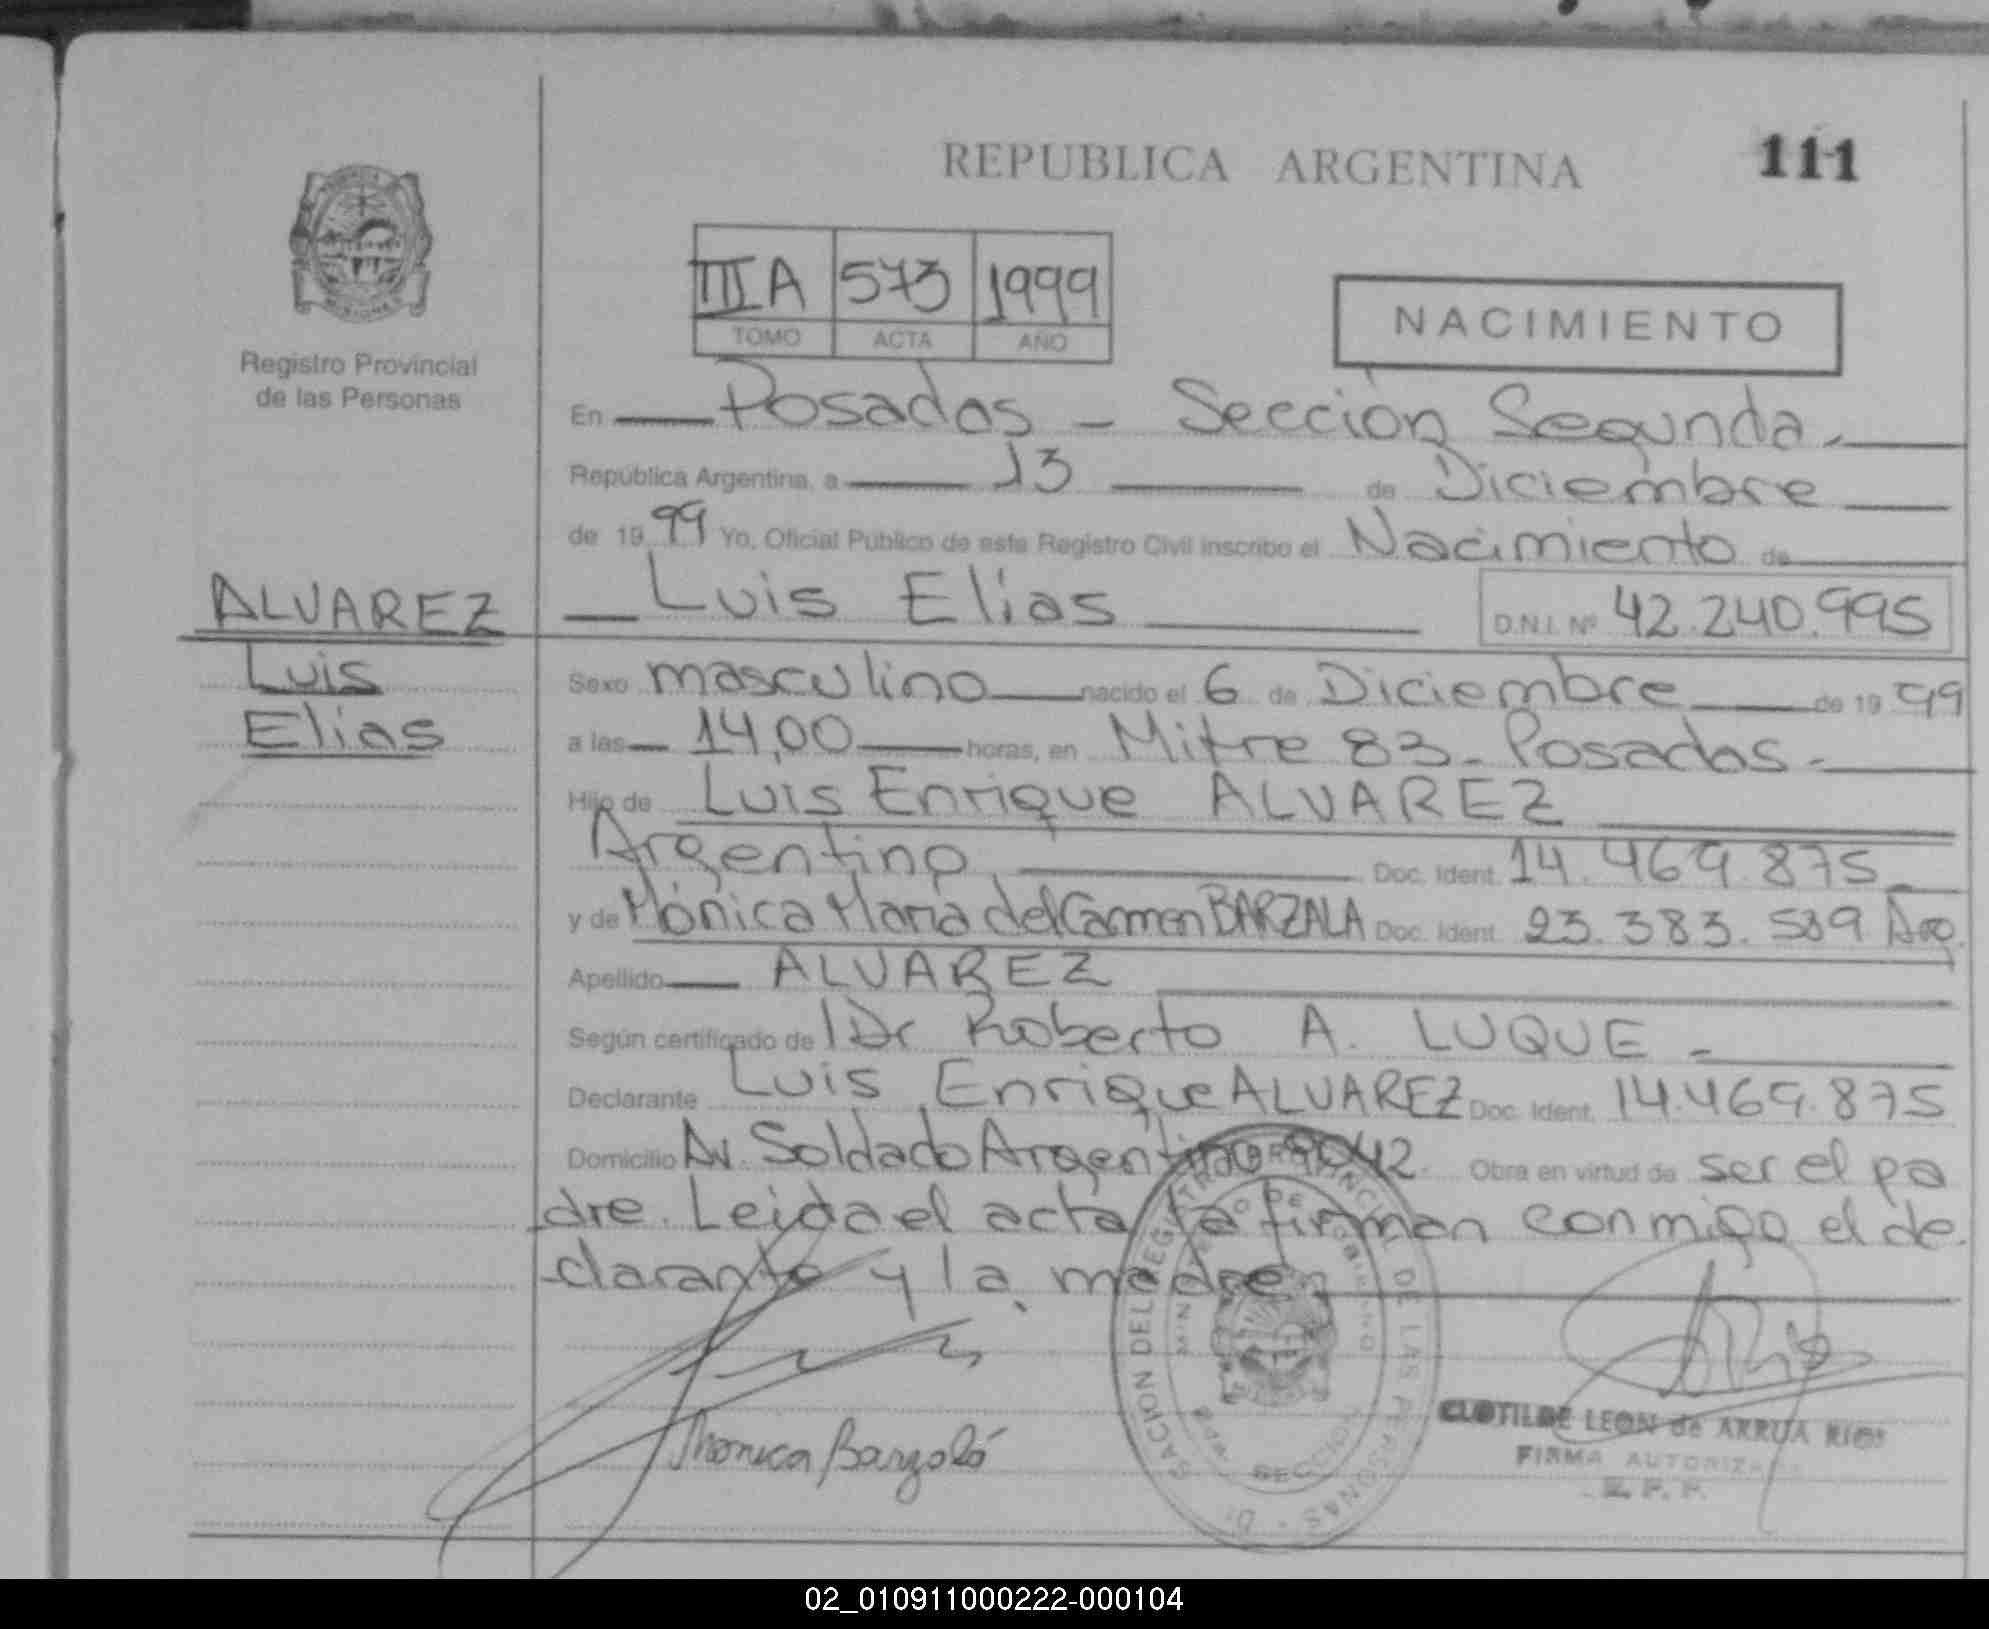 REPUBLICA ARGENTINA
111
Registro Provincial
de las Personas
III A 573 1999
TOMO ACTA AÑO
NACIMIENTO
En Posadas - Sección Segunda.
República Argentina, a 13 de Diciembre
de 1999 Yo, Oficial Público de este Registro Civil inscribo el Nacimiento de
ALVAREZ
Luis
Elias
Luis Elias D.N.I. Nº 42.240.995
Sexo masculino nacido el 6 de Diciembre de 1999
a las 14,00 horas, en Mitre 83 - Posadas -
Hijo de Luis Enrique ALVAREZ
Argentino Doc. Ident. 14.469.875
y de Mónica María del Carmen BARZALA Doc. Ident. 23.383.589 Arg.
Apellido ALVAREZ
Según certificado de Dr Roberto A. LUQUE -
Declarante Luis Enrique ALVAREZ Doc. Ident. 14.469.875
Domicilio Av. Soldado Argentino Obra en virtud de ser el pa
dre. Leida el acta la firman conmigo el de
clarante y la madre.
Monica
CLOTILDE LEON de ARRUA RIOS
FIRMA AUTORIZADA
R. P. P.
02_010911000222-000104